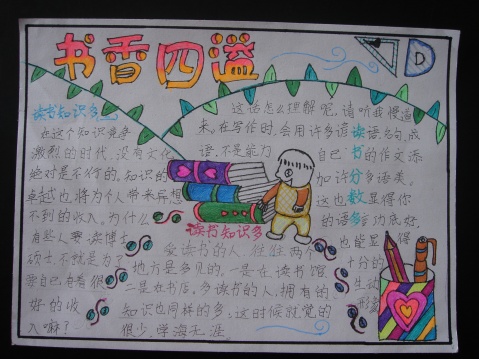 书香四溢
读书知识多
在这个知识竞争
激烈的时代，没有文化
绝对是不行的，知识的
卓越也，将为个人带来异想
不到的收入，为什么
有些人要读博士
硕士不就是为了
要自己有着很
好的收
入嘛？
读书知识多
爱读书的人，往往两个
地方是多见的，一是在读书馆
二是在书店，多读书的人，拥有的
知识也同样的多，这时候就觉的
很少，学海无涯
这话怎么理解呢，请听我慢道
来。在写作时，会用许多谚读语名句，成
语，不是能为
自己书的作文添
加许分多语类，
这也数显得你
的语多功底好，
也能显得
十分的
生动
形象